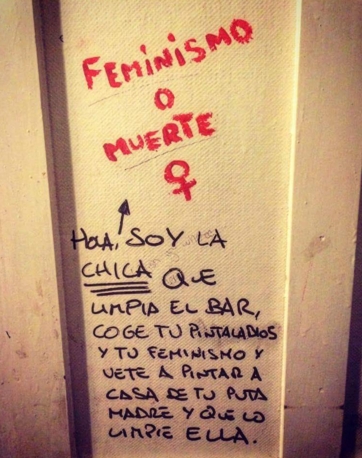 FEMINISMO
O
MUERTE
HOLA, SOY LA
CHICA QUE
LIMPIA EL BAR,
COGE TU PINTALABIOS
Y TU FEMINISMO Y
VETE A PINTAR A
CASA DE TU PUTA
MADRE Y QUE LO
LIMPIE ELLA.